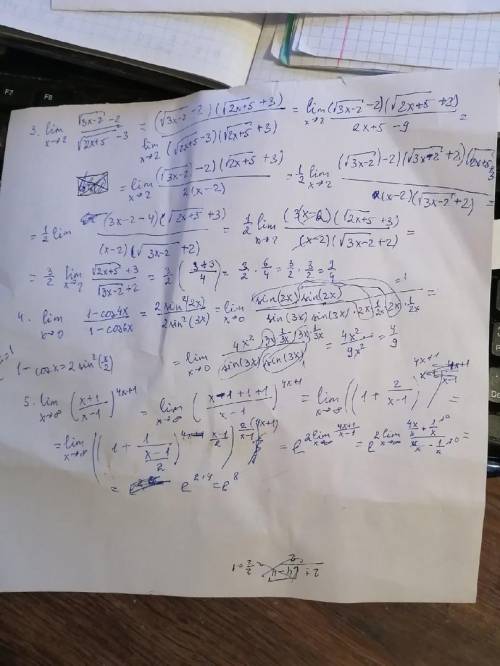 3. lim x→2 (√(3x-2) -2)/(√(2x+5) -3) = lim x→2 ((√(3x-2) -2)(√(2x+5) +3))/((√(2x+5) -3)(√(2x+5) +3)) = lim x→2 ((√(3x-2) -2)(√(2x+5) +3))/(2x+5-9) =
= lim x→2 ((√(3x-2) -2)(√(2x+5) +3))/(2(x-2)) = 1/2 lim x→2 ((√(3x-2) -2)(√(3x-2) +2)(√(2x+5) +3))/((x-2)(√(3x-2) +2)) =
= 1/2 lim ((3x-2-4)(√(2x+5) +3))/((x-2)(√(3x-2) +2)) = 1/2 lim x→2 ((3(x-2)(√(2x+5) +3))/((x-2)(√(3x-2) +2)) =
= 3/2 lim x→2 (√(2x+5) +3)/(√(3x-2) +2) = 3/2 · ((3+3)/4) = 3/2 · 6/4 = 3/2 · 3/2 = 9/4
4. lim x→0 (1-cos4x)/(1-cos6x) = (2sin²(2x))/(2sin²(3x)) = lim x→0 (sin(2x) sin(2x))/(sin(3x) sin(3x)) · 2x · 1/2x · 2x · 1/2x =
1-cosx = 2sin²(x/2)
= lim x→0 (4x² · 3x · 1/3x · 3x · 1/3x)/(sin(3x) sin(3x)) = 4x²/9x² = 4/9
5. lim x→∞ ((x+1)/(x-1))^(4x+1) = lim x→∞ ((x-1+1+1)/(x-1))^(4x+1) = lim x→∞ ((1 + 2/(x-1))^(4x+1) =
= lim x→∞ ((1 + 1/((x-1)/2))^((x-1)/2))^(2(4x+1)/(x-1)) = e^(2 lim x→∞ (4x+1)/(x-1)) = e^(2 lim x→∞ (4x/x + 1/x)/(x/x - 1/x)) =
= e^(2·4) = e^8